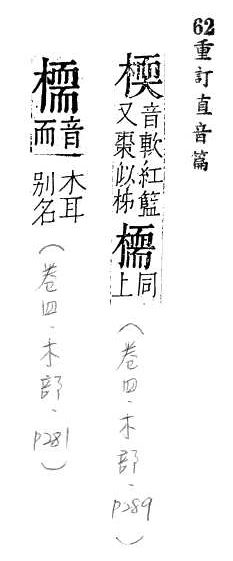 62重訂直音篇
㮕音軟紅籃又棗似柹檽同上
(卷四·木部·P289)
檽音而木耳别名
(卷四·木部·P281)